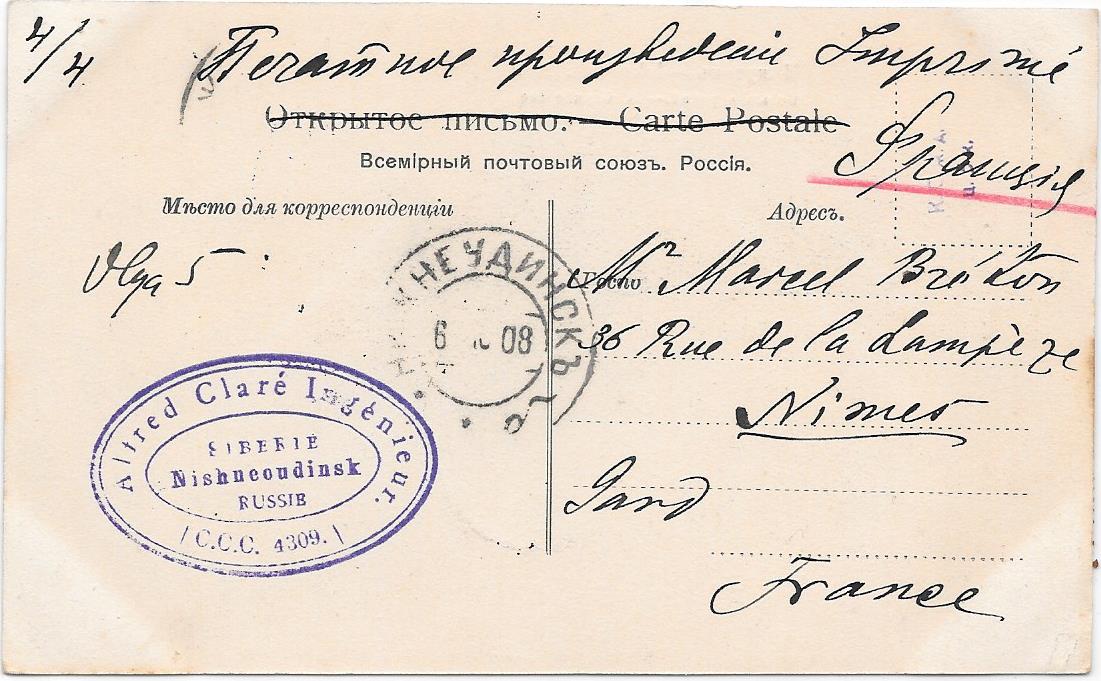 4/4
Печатное произведенiе Imprimé
Открытое письмо. — Carte Postale
Всемiрный почтовый союзъ. Россiя.
Францiя
Мѣсто для корреспонденцiи
Адресъ.
Olga 5
Mr Marcel Bréton
36 Rue de la Lampèze
Nimes
Gard
France
НИЖНЕУДИНСКЪ
6 08
Alfred Claré Ingénieur.
SIBERIE
Nishneoudinsk
RUSSIE
(C.C.C. 4309.)